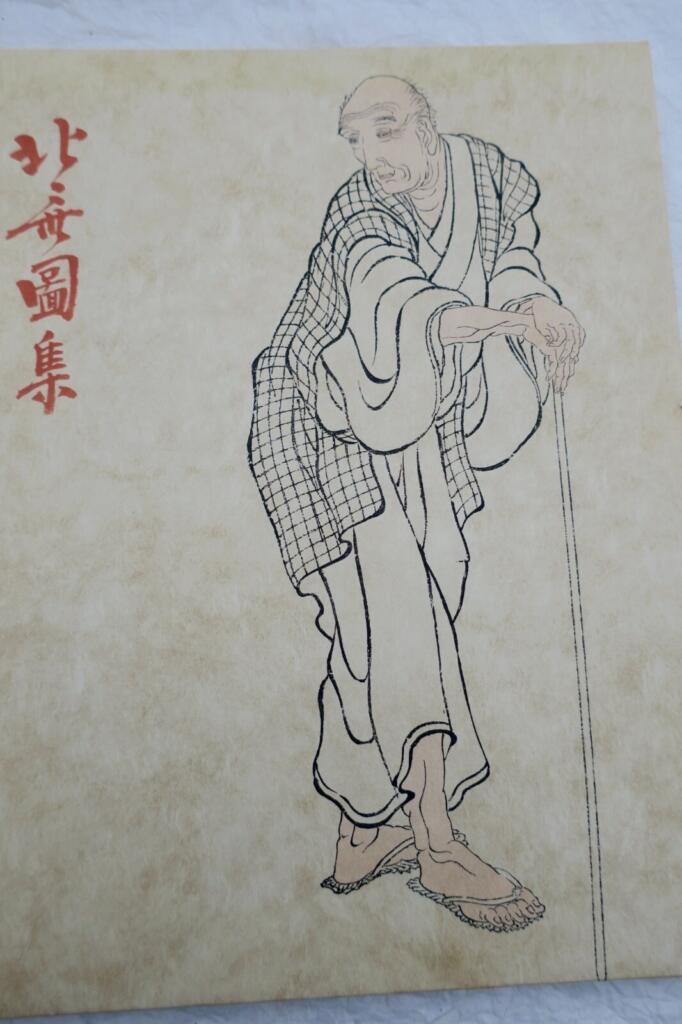 北斎圖集